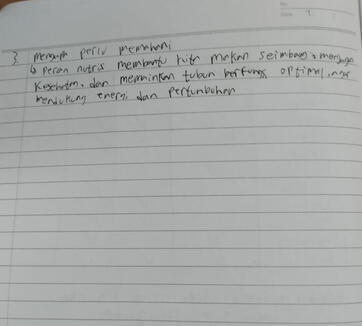 3. mengapa perlu memahami
↳ peran nutrisi membantu kita makan seimbang, menjaga
kesehatan, dan memainkan tubuh berfungsi optimal, agar
mendukung energi dan pertumbuhan